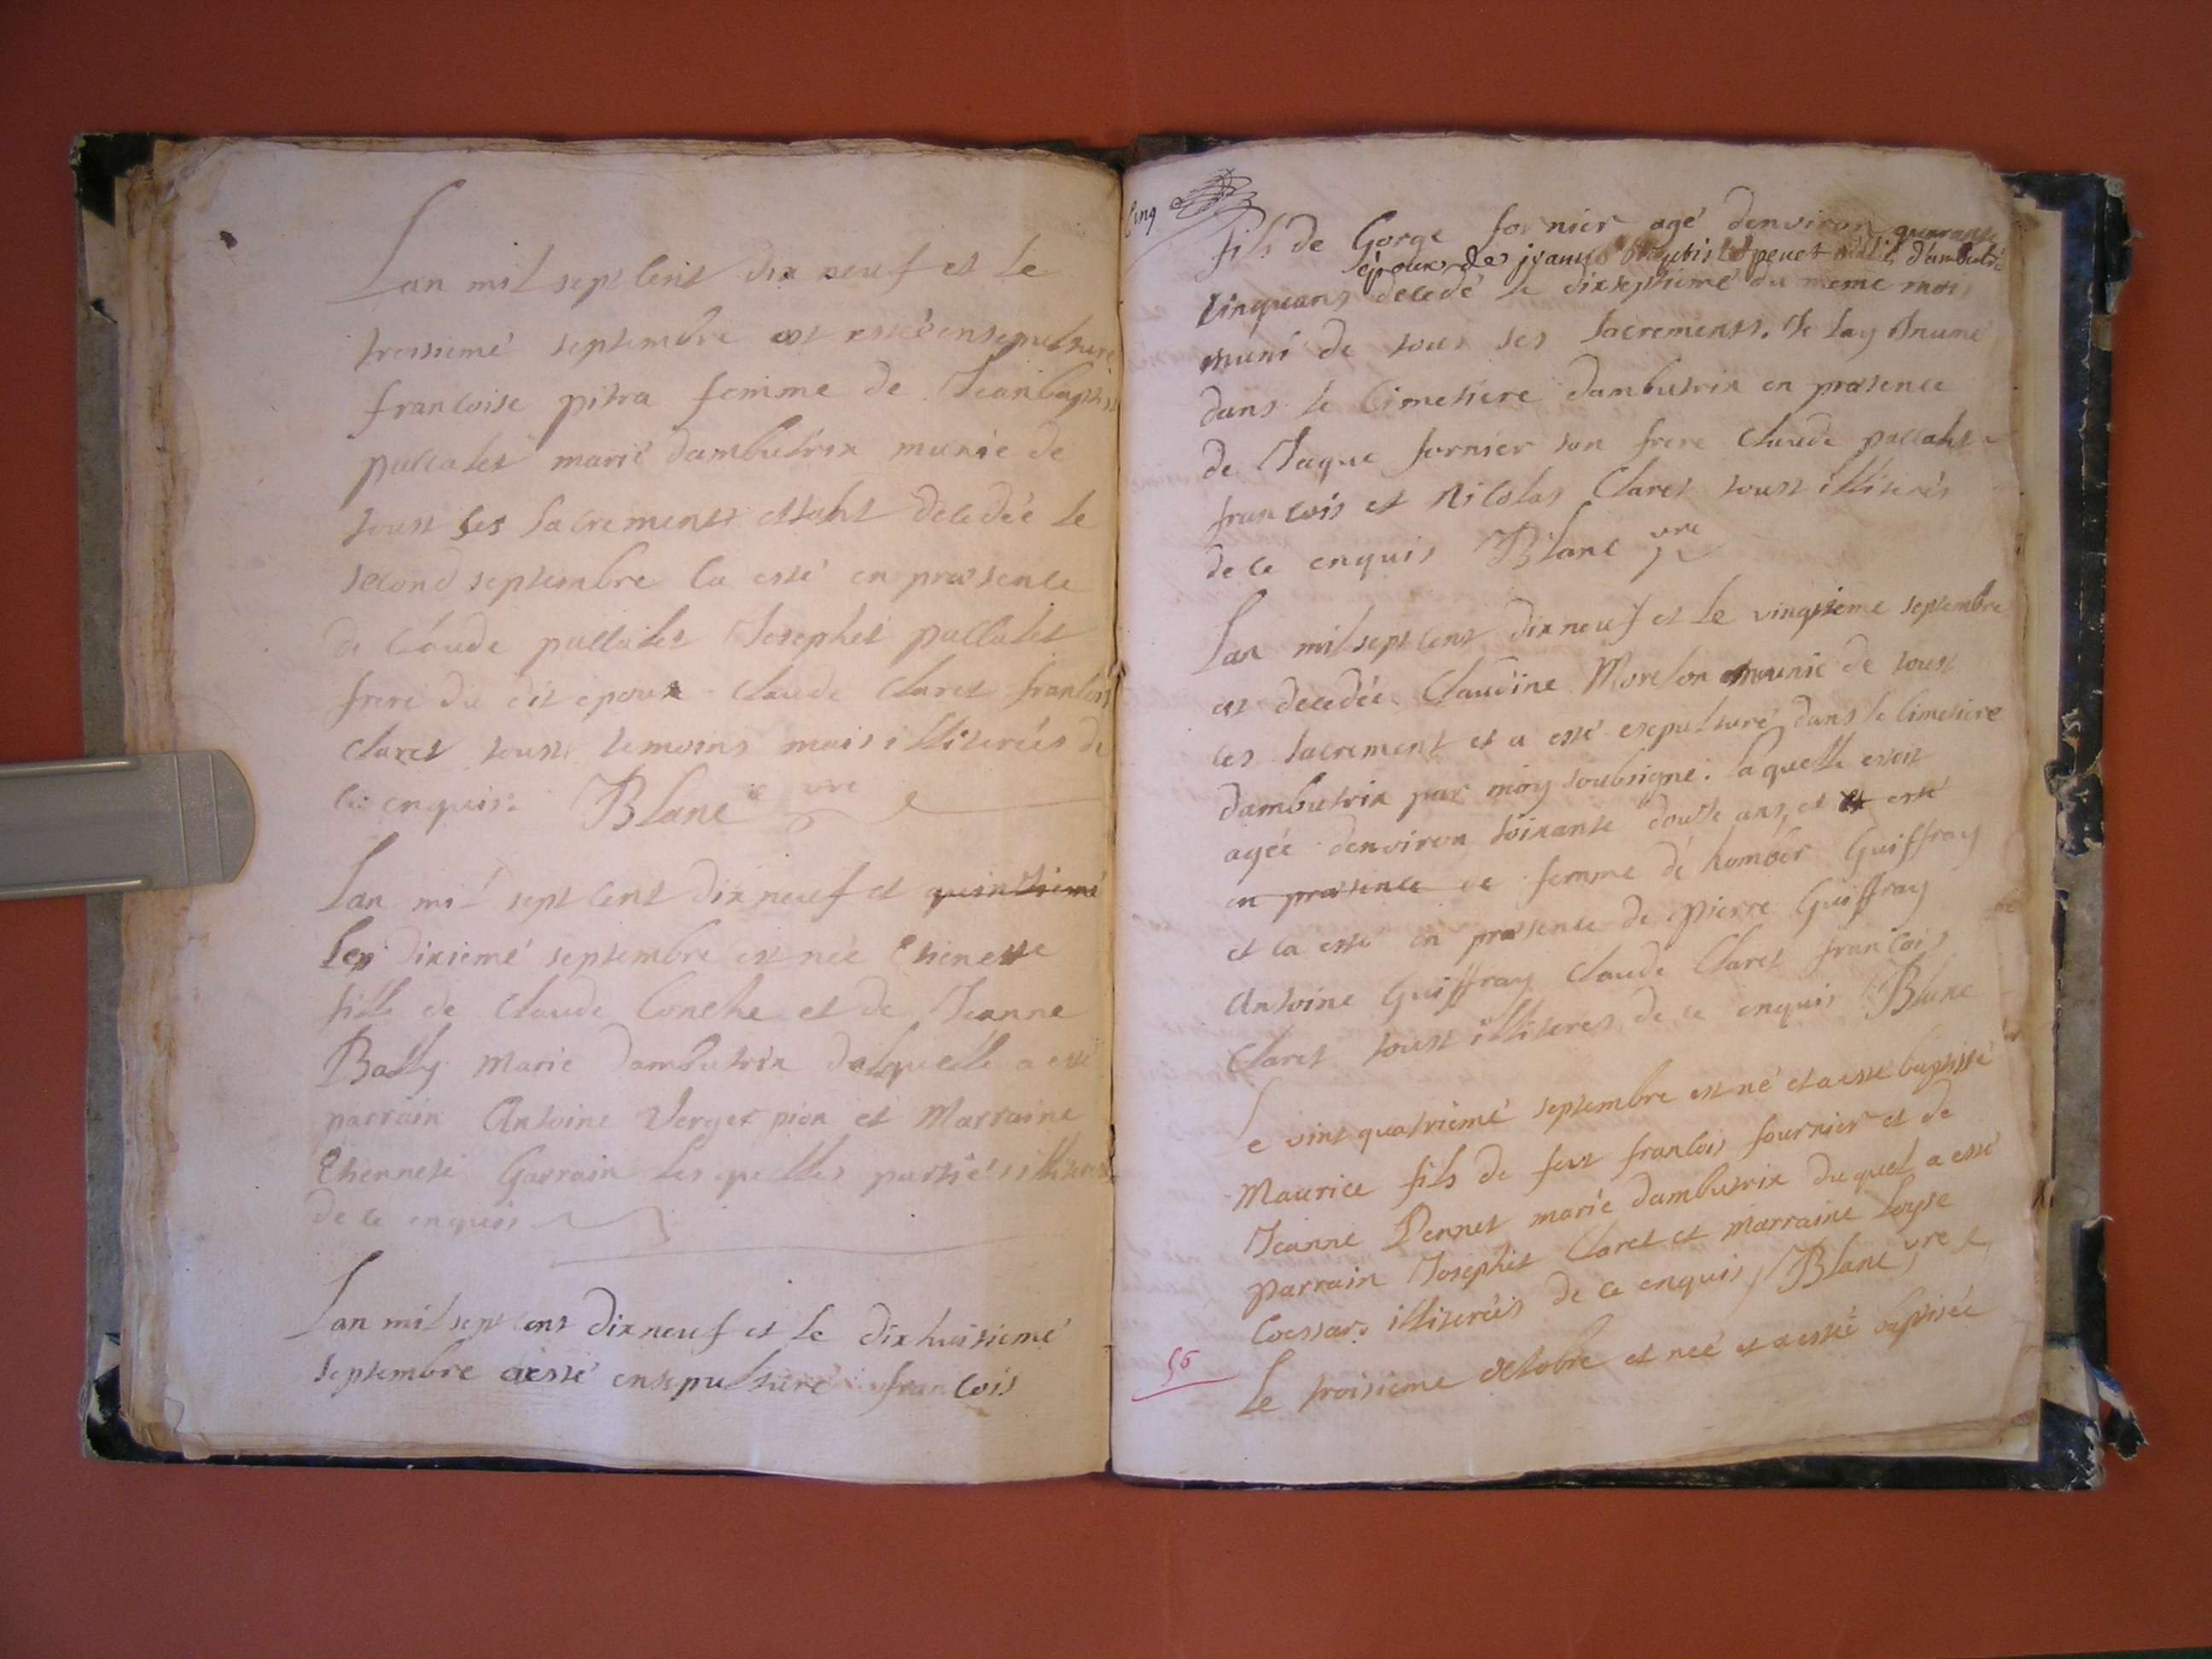 Lan mil sept Cent dix neuf et le
troisieme septembre est estée ensepulture
francoise pitra femme de Jeanbaptis
pallatet marié dambutrix munie de
toust ses Sacrements estant decedée le
second septembre la esté en præsence
de Claude pallatet Josephet pallatet
frere du dit epoux Claude Claret francois
Claret toust temoins mais illiterées de
ce enquis. Blanc vre
Lan mil sept Cent dix neuf et quinzieme
Le dixieme septembre est neé Etienette
fille de Claude Conche et de Jeanne
Bally Marié dambutrix delaquelle a esté
parrain Antoine Verget pion et Marraine
Ethennete Garrain les quelles partiés
de ce enquis
Lan mil sept cens dix neuf et le dix huitiemé
septembre a esté ensepulturé francois
Cinq
fils de Gorge fornier agé denviron quarante
époux de d'ambutrix
cinq ans decedé le dixseptieme du meme mois
muni de tous ses sacrements. Je lay Inumé
dans le Cimetiere dambutrix en præsence
de Jaque fornier son frere Claude pallatet
francois et Nicolas Claret toust illiterés
de ce enquis Blanc vre
Lan mil sept cent dix neuf et le vingtieme septembre
est decedée Claudine Morelon munie de toust
les sacrement et a esté esepulturé dans le Cimetiere
dambutrix par moy soubsigné. laquelle estoit
ageé denviron soixante douse ans, et et esté
en præsence de femme de humber Guiffray
et la esté en præsence de pierre Guiffray
Antoine Guiffray Claude Claret francois
Claret toust illiteres de ce enquis Blanc
Le vint quatriemé septembre est né et a esté baptisé
Maurice fils de feut francois fournier et de
Jeanne Pernet marié dambutrix duquel a esté
parrain Josephet Claret et marraine Loyse
Coessar. illiterées de ce enquis Blanc vre
56
Le troisieme octobre et neé et a estée baptisée